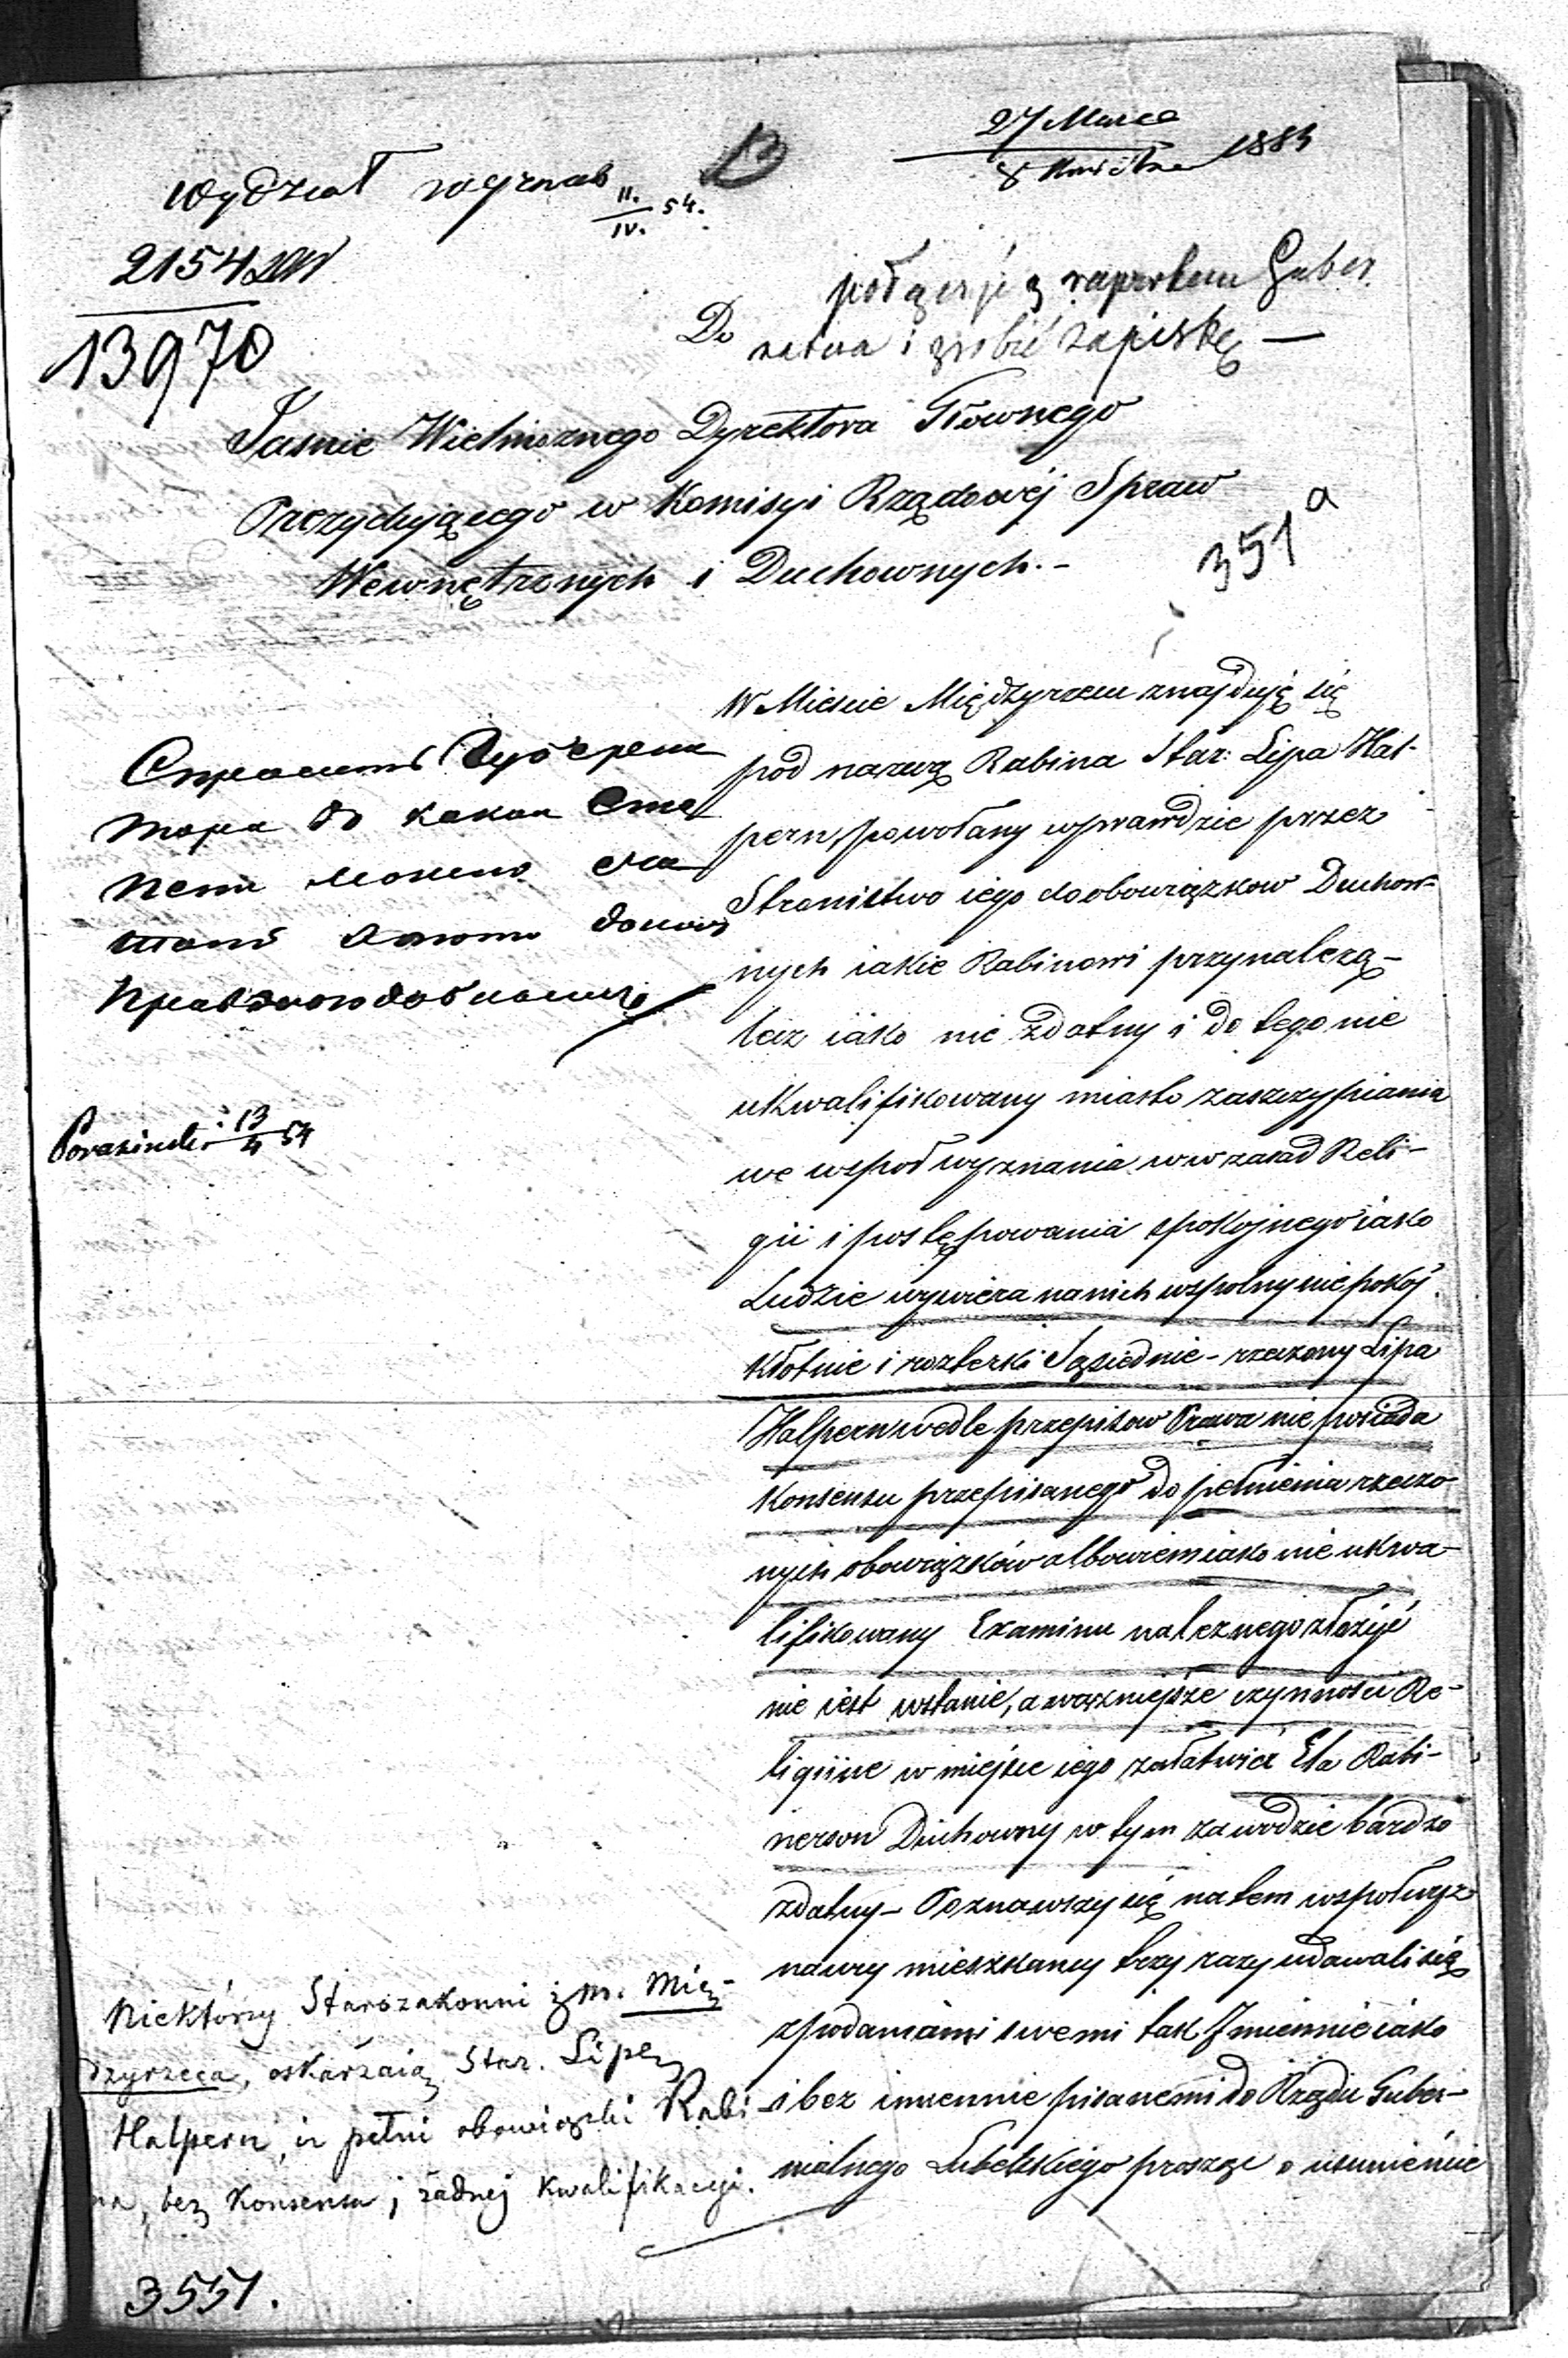 27 Marca
8 Kwietnia 1854
13
Wydział wyznań
II.
IV. 54.
2154
13970
połączyć z raportem Guber
natora i zrobić zapiskę —
Do
Jasnie Wielmoznego Dyrektora Głownego
Prezydującego w Komisyi Rządowéj Spraw
Wewnętrznych i Duchownych.-
351 a
W Miescie Międzyrzecu znajduję się
pod nazwą Rabina Star: Lipa Hal-
pern powołany wprawdzie przez
Stronictwo iego do obowiązkow Duchow-
nych iakie Rabinowi przynalezą-
lecz iako nie zdatny i do tego nie
ukwalifikowany miasto zaszczypiania
we wspoł wyznania w zasad Reli-
gii i postępowania spokojnego iako
Ludzie wywiera na nich wspolny nie pokoj
kłotnie i rozterki Sąsiednie - rzeczony Lipa
Halpern wedle przepisow Prawa nie posiada
Konsensu przepisanego do pełnienia rzeczo-
nych obowiązków albowiem iako nie ukwa-
lifikowany Examinu naleznego złożyć
nie iest wstanie, a ważniejsze czynnosci Re-
ligiine w miejsce iego załatwiá Ela Rabi-
nerson Duchowny w tym zawodzie bardzo
zdatny - Poznawszy się na tem wspołwyz
nawcy mieszkancy trzy razy udawali się
z podaniami swemi tak Jmiennie iako
i bez imiennie pisanemi do Rządu Guber-
nialnego Lubelskiego prosząc o usunieńcie
Спросить Губерна
тора до какой сте
пени можно
этот донос
правдоподобности
13
4 54
Niektórzy Starozakonni z m. Mię-
dzyrzeca, oskarżaią Star. Lipę
Halpern, iż pełni obowiązki Rabi-
na, bez Konsensu i żadnej kwalifikacyi.
3551.